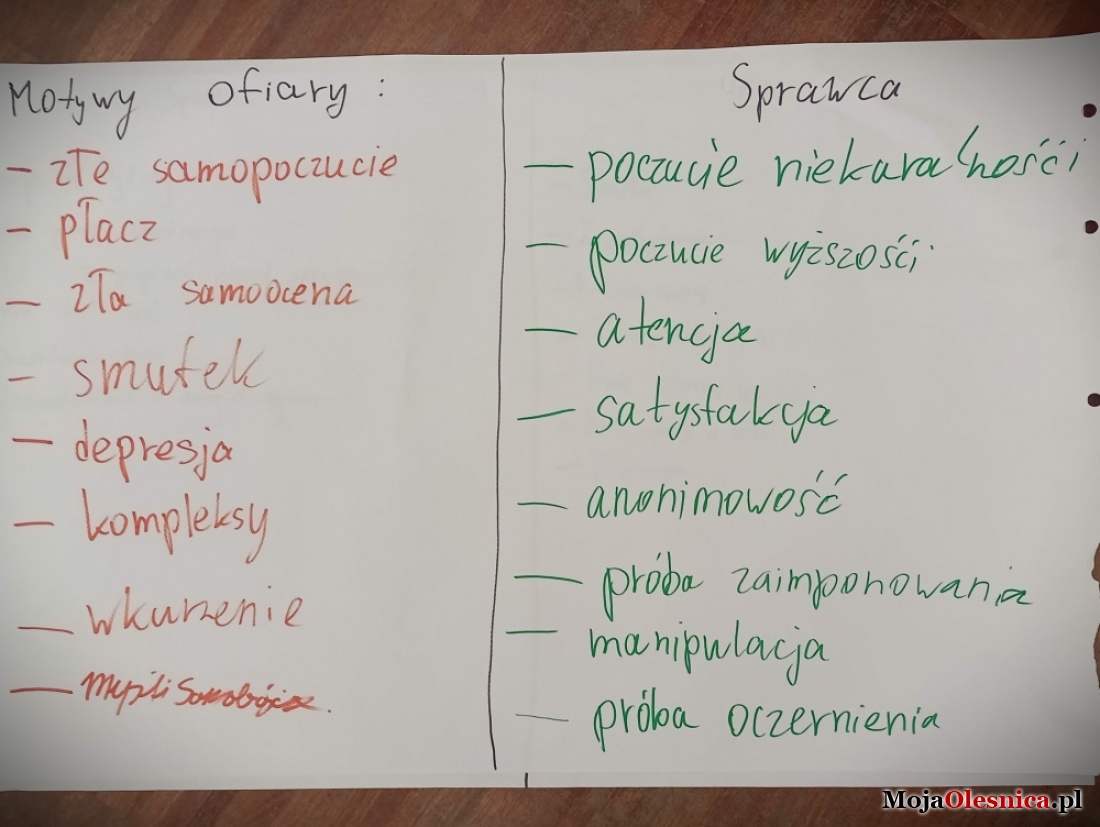 Motywy Ofiary:
- złe samopoczucie
- płacz
- zła samoocena
- smutek
- depresja
- kompleksy
- wkurzenie
- Myśli
Sprawca
- poczucie niekaralnośći
- poczucie wyższośći
- atencja
- satysfakcja
- anonimowość
- próba zaimponowania
- manipulacja
- próba oczernienia
MojaOlesnica.pl